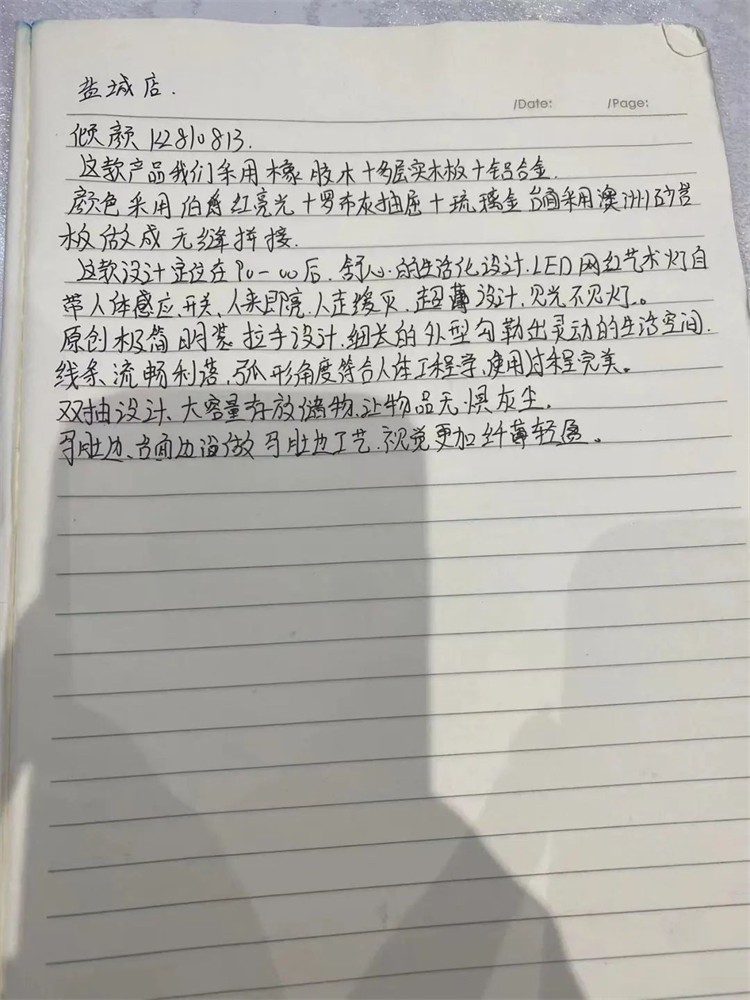 盐城店.
/Date: /Page:
倾颜 K2810813.
这款产品我们采用橡胶木+多层实木板+铝合金.
颜色采用伯爵红亮光+罗布灰抽屉+琉璃金 台面采用澳洲砂岩
板做成无缝拼接.
这款设计定位在90-00后、舒心的生活化设计.LED网红艺术灯自
带人体感应开关、人来即亮.人走缓灭,超薄设计,见光不见灯。
原创极简明装拉手设计.细长的外型勾勒出灵动的生活空间.
线条流畅利落,弧形角度符合人体工程学,使用过程完美。
双抽设计、大容量存放储物.让物品无惧灰尘.
马肚边、台面边沿做马肚边工艺.视觉更加纤薄轻盈。